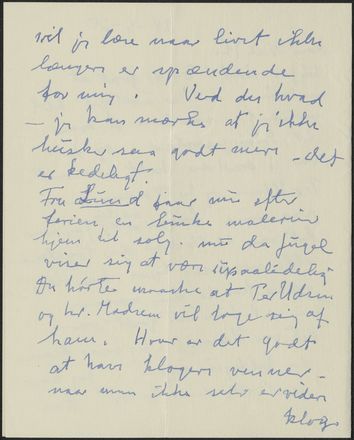 vil jeg læse naar livet ikke
længere er spændende
for mig. Ved du hvad
– jeg kan mærke at jeg ikke
husker saa godt mere – det
er kedeligt.
Fru Lund faar nu efter
ferien, en bunke malerier
hjem til salg. nu da Fugel
viser sig at være upaalidelig
Du hørte maaske at Per Udsen
og hr. Madsen vil tage sig af
ham. Hvor er det godt
at have klogere venner –
naar man ikke selv er videre
klog